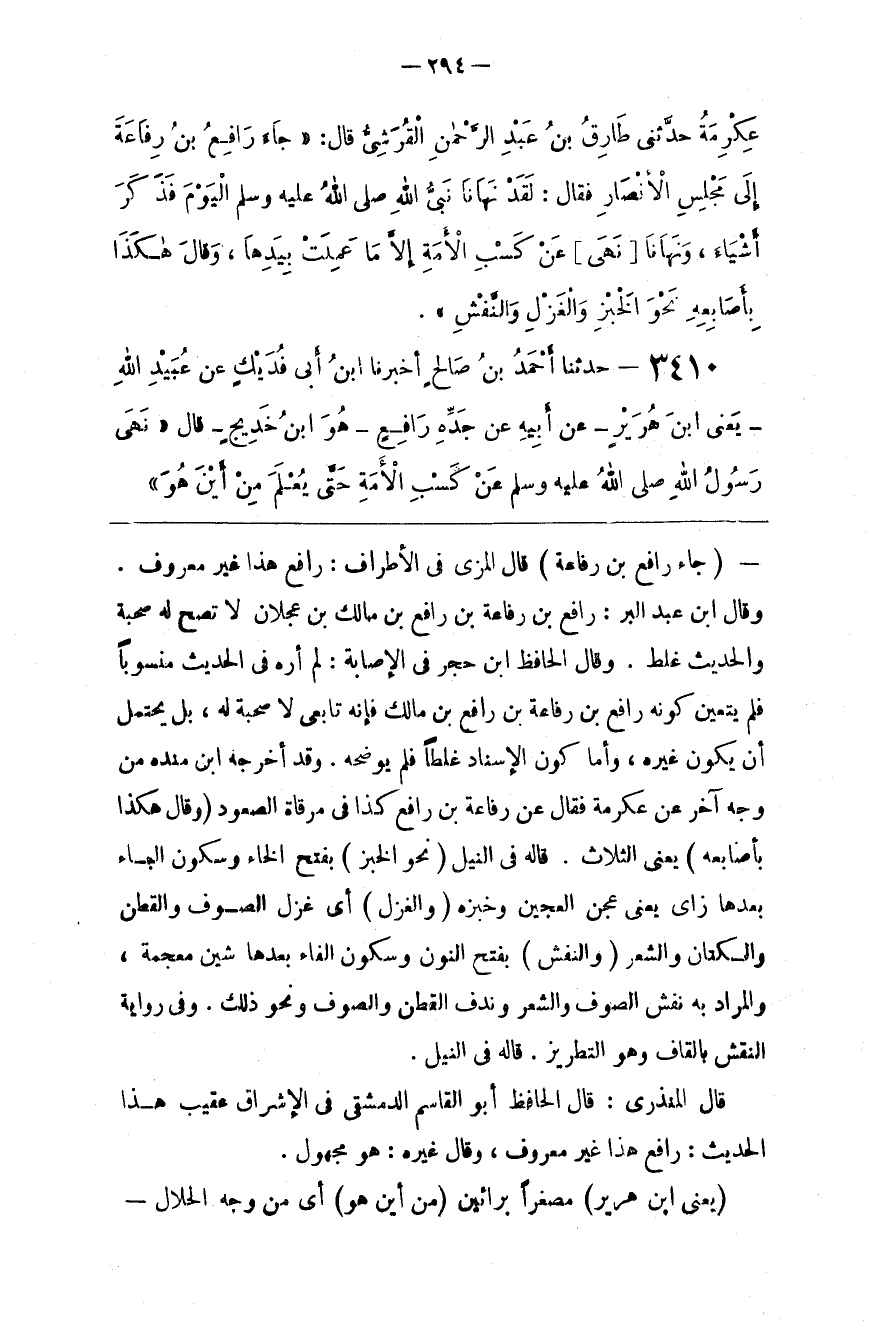 — ٢٩٤ —
عِكْرِمَةُ حدَّثنى طَارِقُ بنُ عَبْدِ الرَّحْمٰنِ الْقُرَشِىُّ قال: « جاءَ رَافِعُ بنُ رِفَاعَةَ
إِلَى مَجْلِسِ الْأَنْصَارِ فقال : لَقَدْ نَهَانَا نَبِىُّ اللهِ صلى اللهُ عليه وسلم الْيَوْمَ فَذَكَرَ
أَشْيَاءَ ، وَنَهَانَا [ نَهَى ] عَنْ كَسْبِ الْأَمَةِ إلاَّ مَا عَمِلَتْ بِيَدِهاَ ، وَقالَ هٰكَذَا
بِأَصَابِعِهِ نَحْوَ الْخَبْزِ وَالْغَزْلِ وَالنَّفْشِ » .
٣٤١٠ — حدثنا أَحْمَدُ بنُ صَالحٍ أخبرنا ابنُ أَبى فُدَيْكٍ عن عُبَيْدِ اللهِ
– يَعْنى ابنَ هُرَيْرٍ – عن أَبيهِ عن جَدِّهِ رَافِعٍ – هُوَ ابنُ خَدِيجٍ – قال « نَهَى
رَسُولُ اللهِ صلى اللهُ عليه وسلم عَنْ كَسْبِ الْأَمَةِ حَتَّى يُعْلَمَ مِنْ أَيْنَ هُوَ »
— ( جاء رافع بن رفاعة ) قال المزى فى الأطراف : رافع هذا غير معروف .
وقال ابن عبد البر : رافع بن رفاعة بن رافع بن مالك بن عجلان لا تصح له صحبة
والحديث غلط . وقال الحافظ ابن حجر فى الإصابة : لم أره فى الحديث منسوباً
فلم يتعين كونه رافع بن رفاعة بن رافع بن مالك فإنه تابعى لا صحبة له ، بل يحتمل
أن يكون غيره ، وأما كون الإسناد غلطاً فلم يوضحه . وقد أخرجه ابن منده من
وجه آخر عن عكرمة فقال عن رفاعة بن رافع كذا فى مرقاة الصعود (وقال هكذا
بأصابعه ) يعنى الثلاث . قاله فى النيل ( نحو الخبز ) بفتح الخاء وسكون الباء
بعدها زاى يعنى عجن العجين وخبزه ( والغزل ) أى غزل الصوف والقطن
والكتان والشعر ( والنفش ) بفتح النون وسكون الفاء بعدها شين معجمة ،
والمراد به نفش الصوف والشعر وندف القطن والصوف ونحو ذلك . وفى رواية
النقش بالقاف وهو التطريز . قاله فى النيل .
قال المنذرى : قال الحافظ أبو القاسم الدمشقى فى الإشراق عقيب هذا
الحديث : رافع هذا غير معروف ، وقال غيره : هو مجهول .
(يعنى ابن هرير) مصغراً برائين (من أين هو) أى من وجه الحلال —